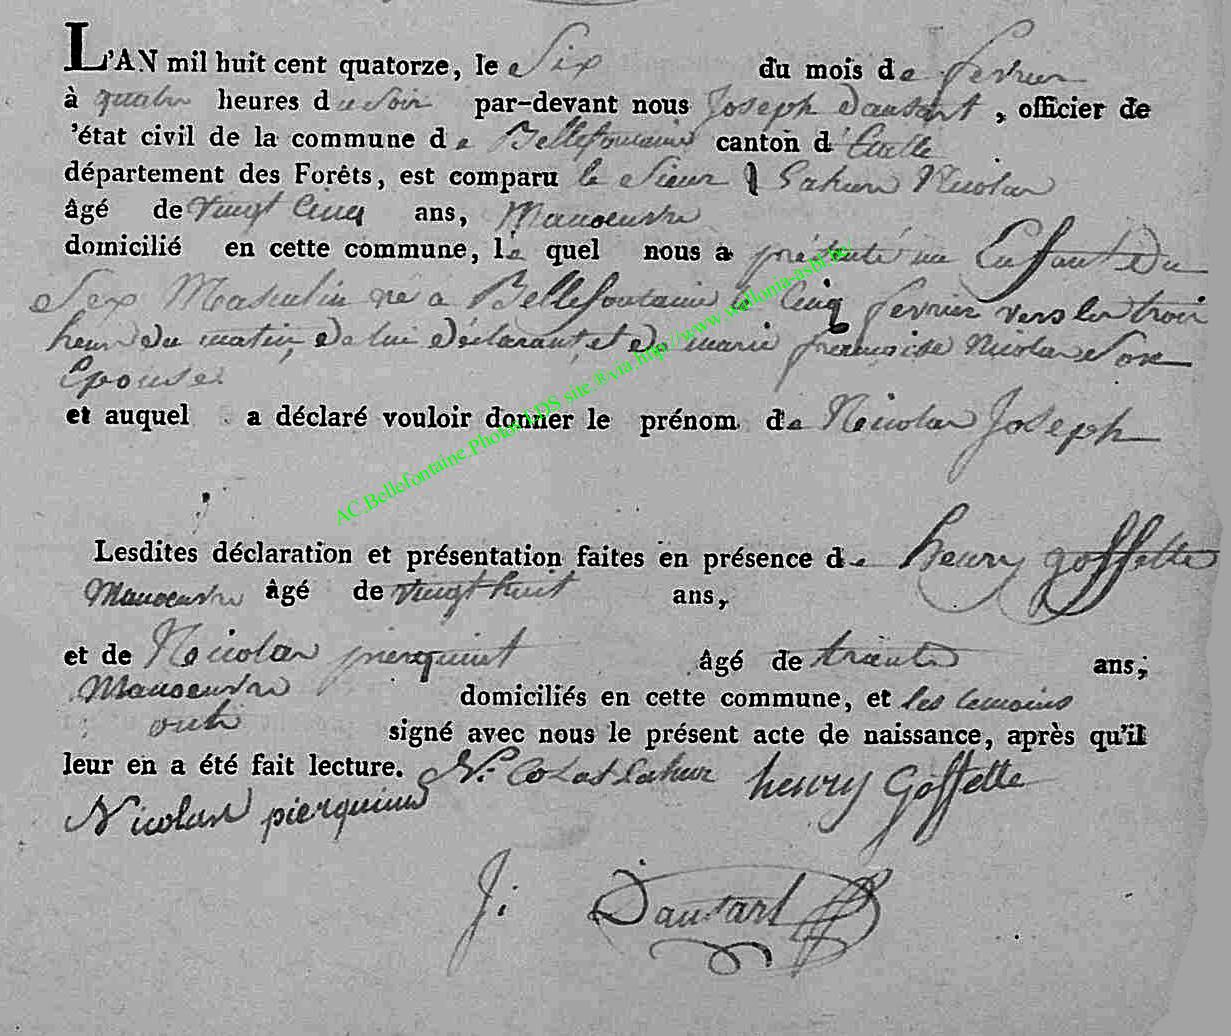 L'AN mil huit cent quatorze, le Six du mois de fevrier
à quatre heures du soir par-devant nous Joseph Dausart, officier de
'état civil de la commune de Bellefontaine canton d'Etalle
département des Forêts, est comparu le Sieur Lahure Nicolas
âgé de Vingt Cinq ans, Manoeuvre
domicilié en cette commune, le quel nous a présenté un Enfant Du
Sex Masculin né a Bellefontaine le Cinq fevrier vers les trois
heures du matin, De lui Déclarant, et De marie françoise Nicolas Son
Epouse
et auquel a déclaré vouloir donner le prénom de Nicolas Joseph
AC.Bellefontaine.Photos LDS site.®via,http://www.wallonia-asbl.be/
Lesdites déclaration et présentation faites en présence de henry goffette
Manoeuvre âgé de vingt huit ans,
et de Nicolas pierquint âgé de trente ans,
Manoeuvre domiciliés en cette commune, et les temoins
ont signé avec nous le présent acte de naissance, après qu'il
leur en a été fait lecture. Nicolas Lahure henry Goffette
Nicolas pierquin
J. Dausart